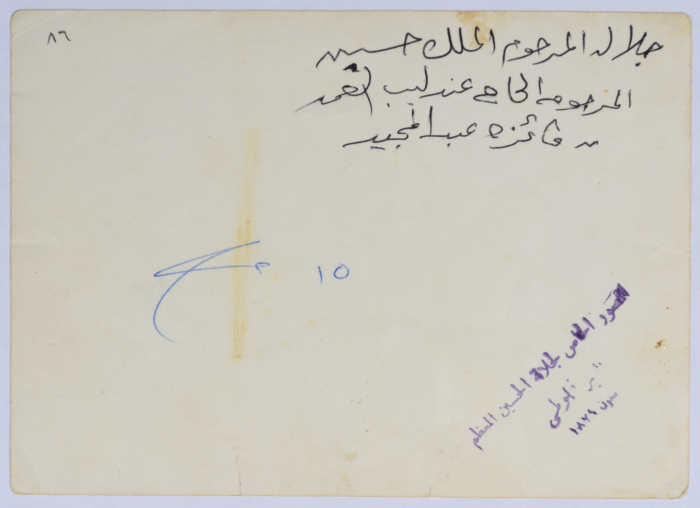 ٨٦
جلاله المرحوم الملك حسين
المرحومه الحاجه عندليب العمد
" فائزه عبد المجيد
١٥
المصور الخاص لجلالة الحسين المعظم